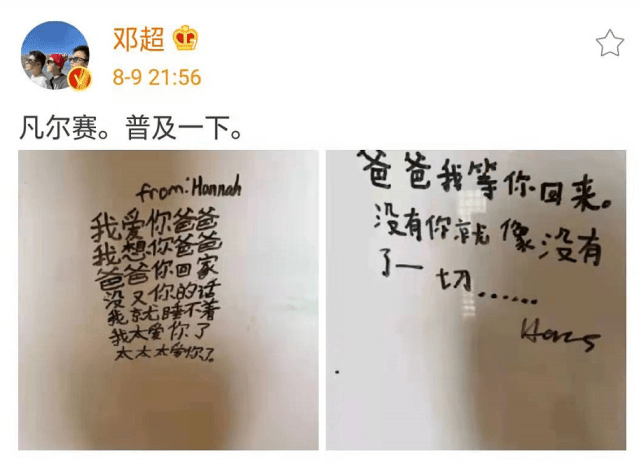 邓超
8-9 21:56
凡尔赛。普及一下。
from:Hannah
我爱你爸爸
我想你爸爸
爸爸你回家
没又你的话
我就睡不着
我太爱你了
太太太爱你了。
爸爸我等你回来。
没有你就像没有
了一切......